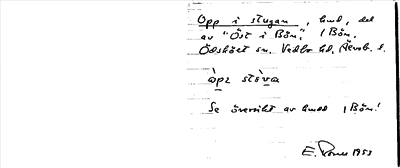 Opp i stugan, hmd, del
av "Öst i Bön," i Bön.
Ödskölt sn. Vedbo hd. Älvsb. l.
åpɪ stöva
Se översikt av hmdd i Bön!
E. 1953